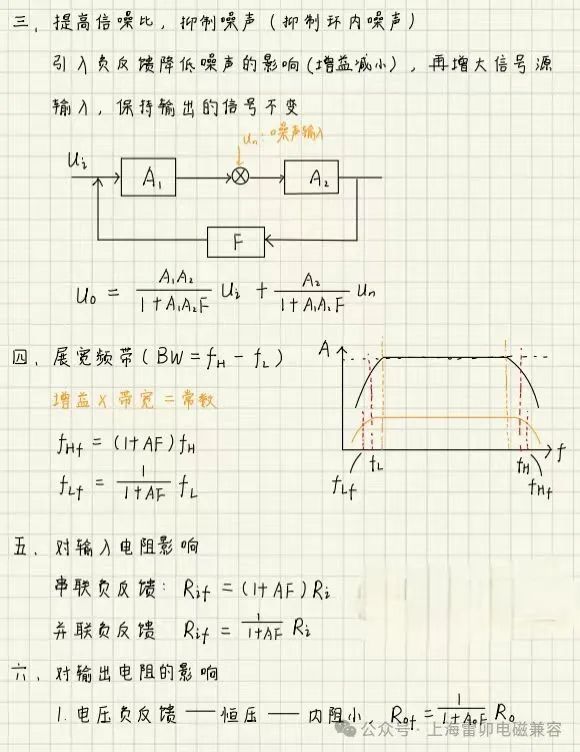 三、提高信噪比，抑制噪声（抑制环内噪声）
引入负反馈降低噪声的影响（增益减小），再增大信号源
输入，保持输出的信号不变
Un:噪声输入
Ui
A₁
A₂
F
U₀ = A₁A₂/(1+A₁A₂F) Ui + A₂/(1+A₁A₂F) Un
四、展宽频带（BW=fH-fL）
增益×带宽=常数
fHf=(1+AF)fH
fLf=1/(1+AF) fL
A
fLf
fL
fH
fHf
f
五、对输入电阻影响
串联负反馈：Rif=(1+AF)Ri
并联负反馈 Rif=1/(1+AF) Ri
六、对输出电阻的影响
1.电压负反馈——恒压——内阻小，Rof=1/(1+A₀F) R₀
公众号·上海雷卯电磁兼容